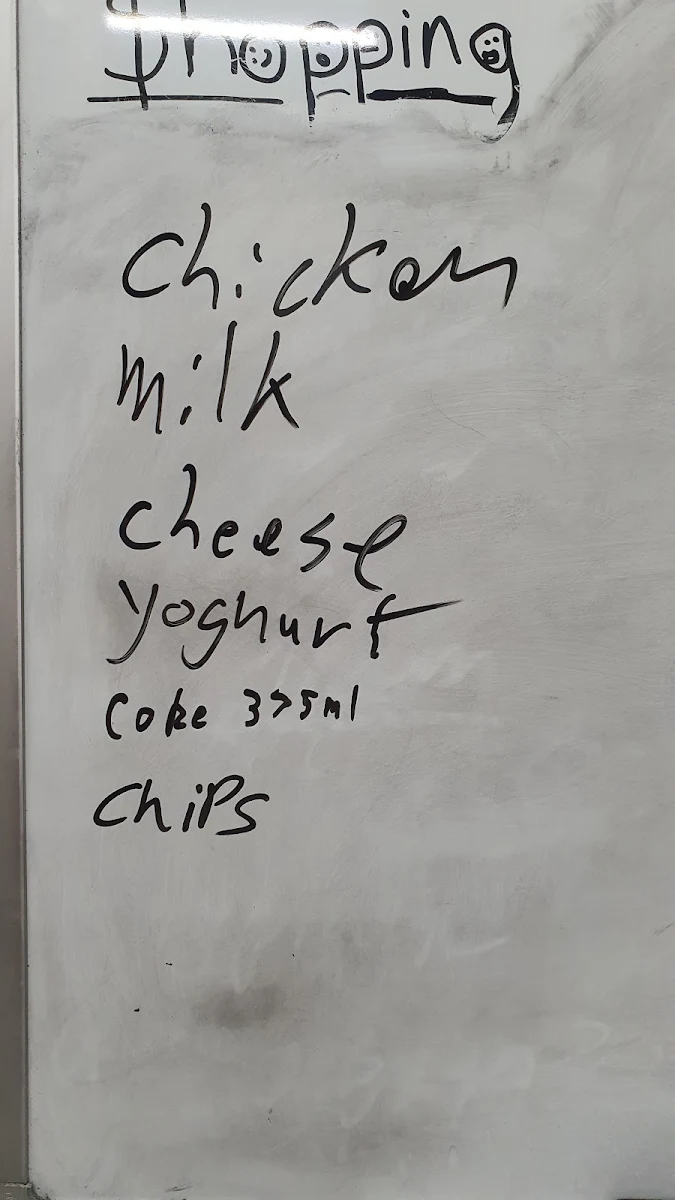 $hopping
chicken
milk
cheese
Yoghurt
Coke 375ml
chips